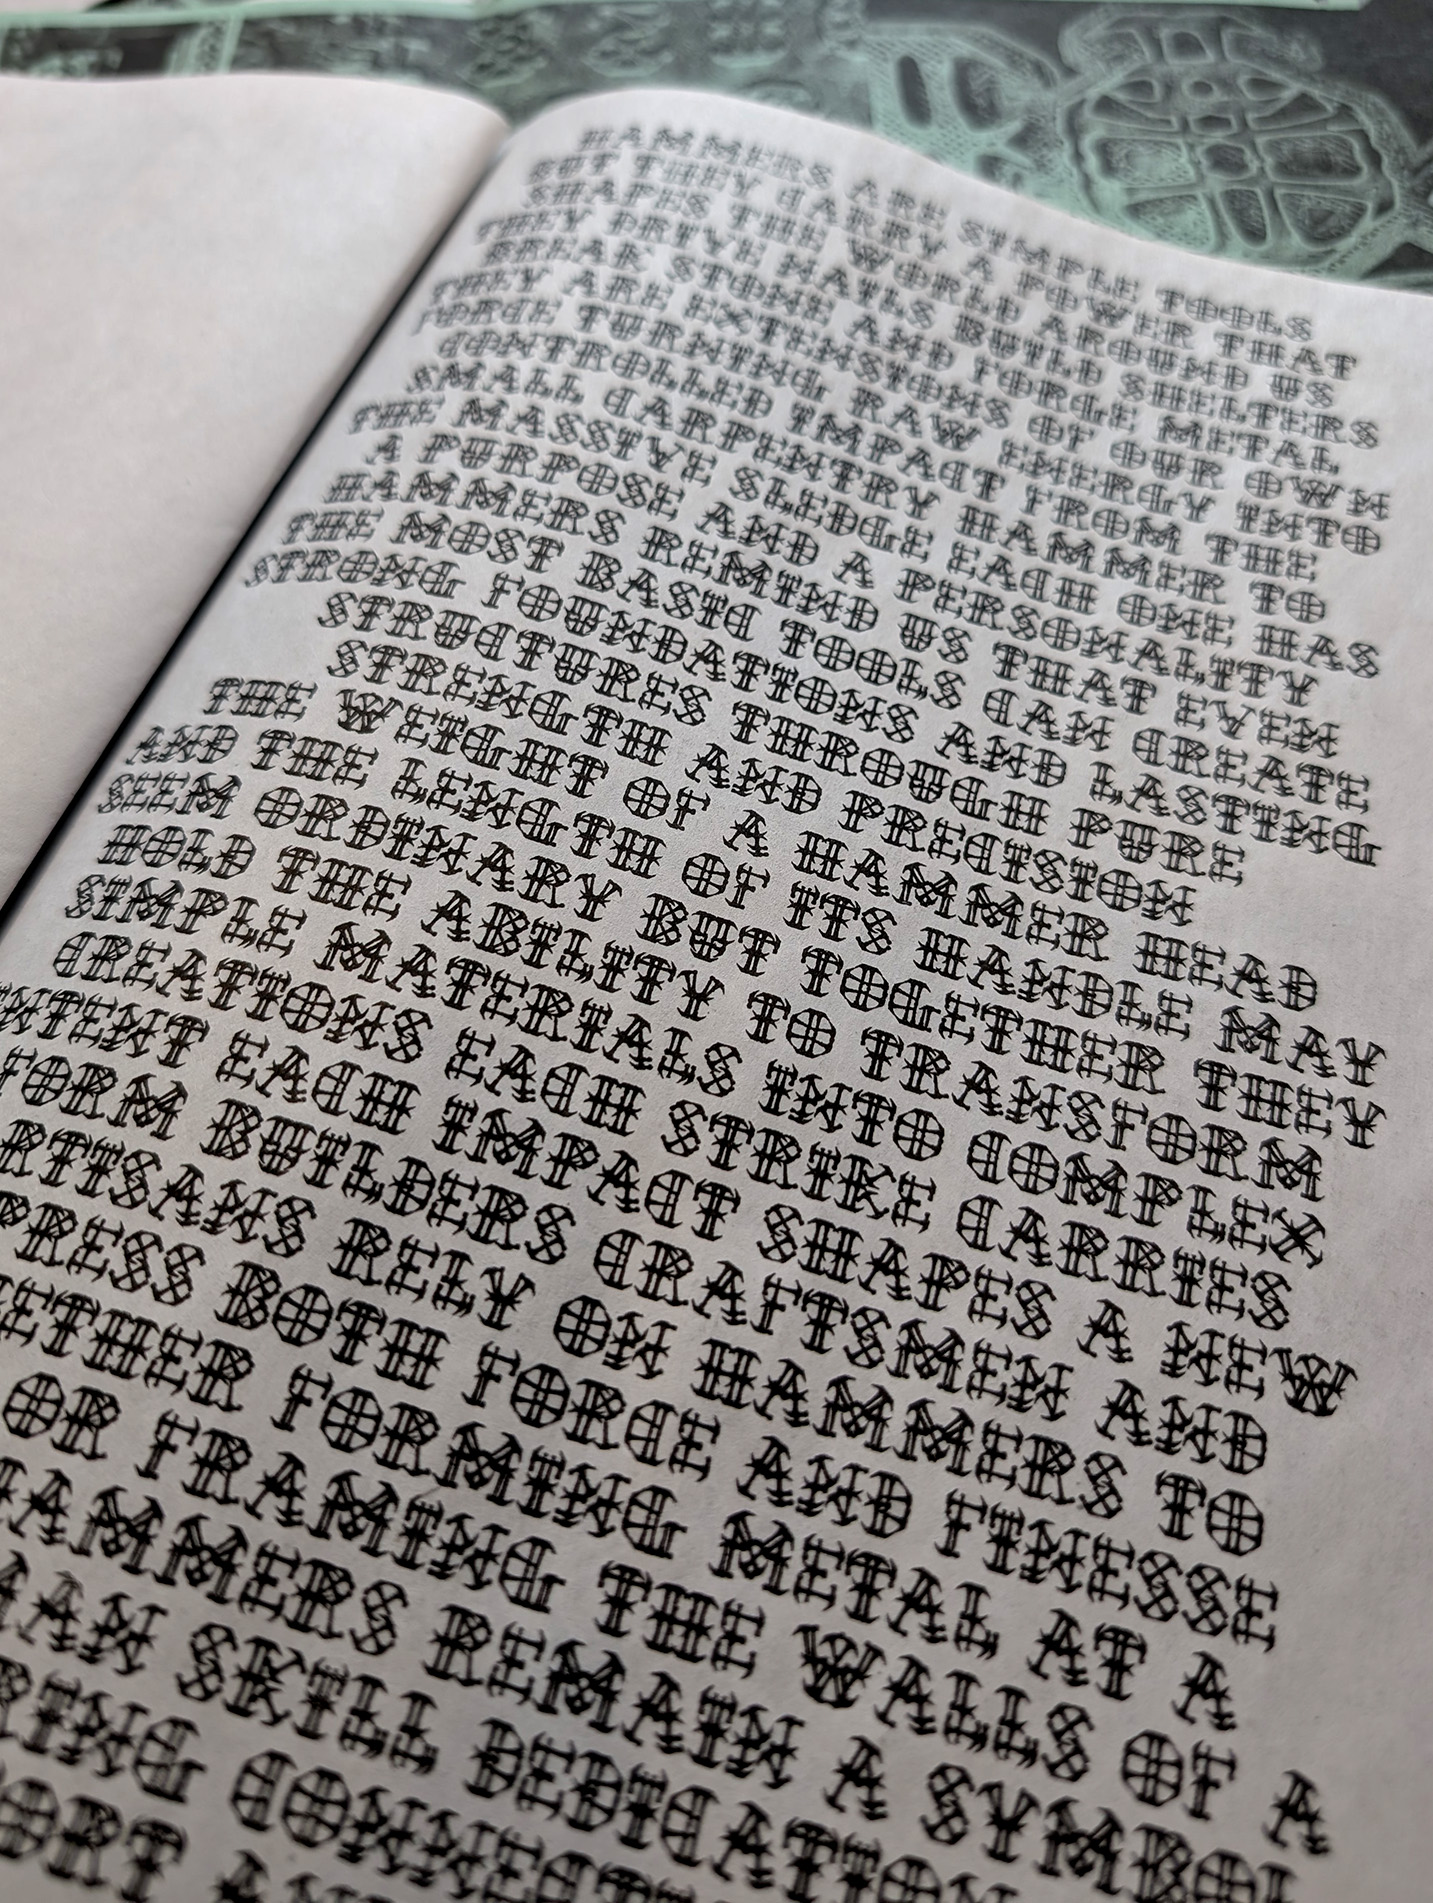 HAMMERS ARE SIMPLE TOOLS
BUT THEY CARRY A POWER THAT
SHAPES THE WORLD AROUND US
THEY DRIVE NAILS BUILD SHELTERS
BREAK STONE AND FORGE METAL
THEY ARE EXTENSIONS OF OUR OWN
FORCE TURNING RAW ENERGY INTO
CONTROLLED IMPACT FROM THE
SMALL CARPENTRY HAMMER TO
THE MASSIVE SLEDGE EACH ONE HAS
A PURPOSE AND A PERSONALITY
HAMMERS REMIND US THAT EVEN
THE MOST BASIC TOOLS CAN CREATE
STRONG FOUNDATIONS AND LASTING
STRUCTURES THROUGH PURE
STRENGTH AND PRECISION
THE WEIGHT OF A HAMMER HEAD
AND THE LENGTH OF ITS HANDLE MAY
SEEM ORDINARY BUT TOGETHER THEY
HOLD THE ABILITY TO TRANSFORM
SIMPLE MATERIALS INTO COMPLEX
CREATIONS EACH STRIKE CARRIES
EACH IMPACT SHAPES A NEW
FORM BUILDERS CRAFTSMEN AND
RTISANS RELY ON HAMMERS TO
PRESS BOTH FORCE AND FINESSE
ETHER FORMING METAL AT A
OR FRAMING THE WALLS OF A
HAMMERS REMAIN A SYMBOL
MAN SKILL DEDICATION
RING CONNECT
ORT